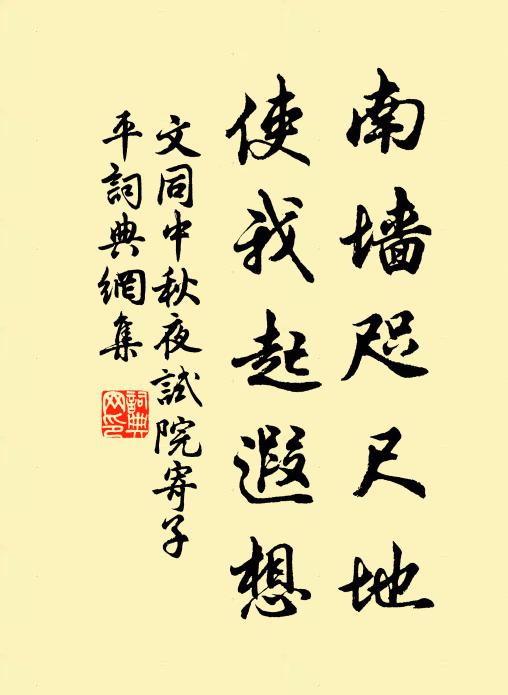 南墙咫尺地
使我起遐想
文同中秋夜試院寄子
平詞典網集
詞典
网印